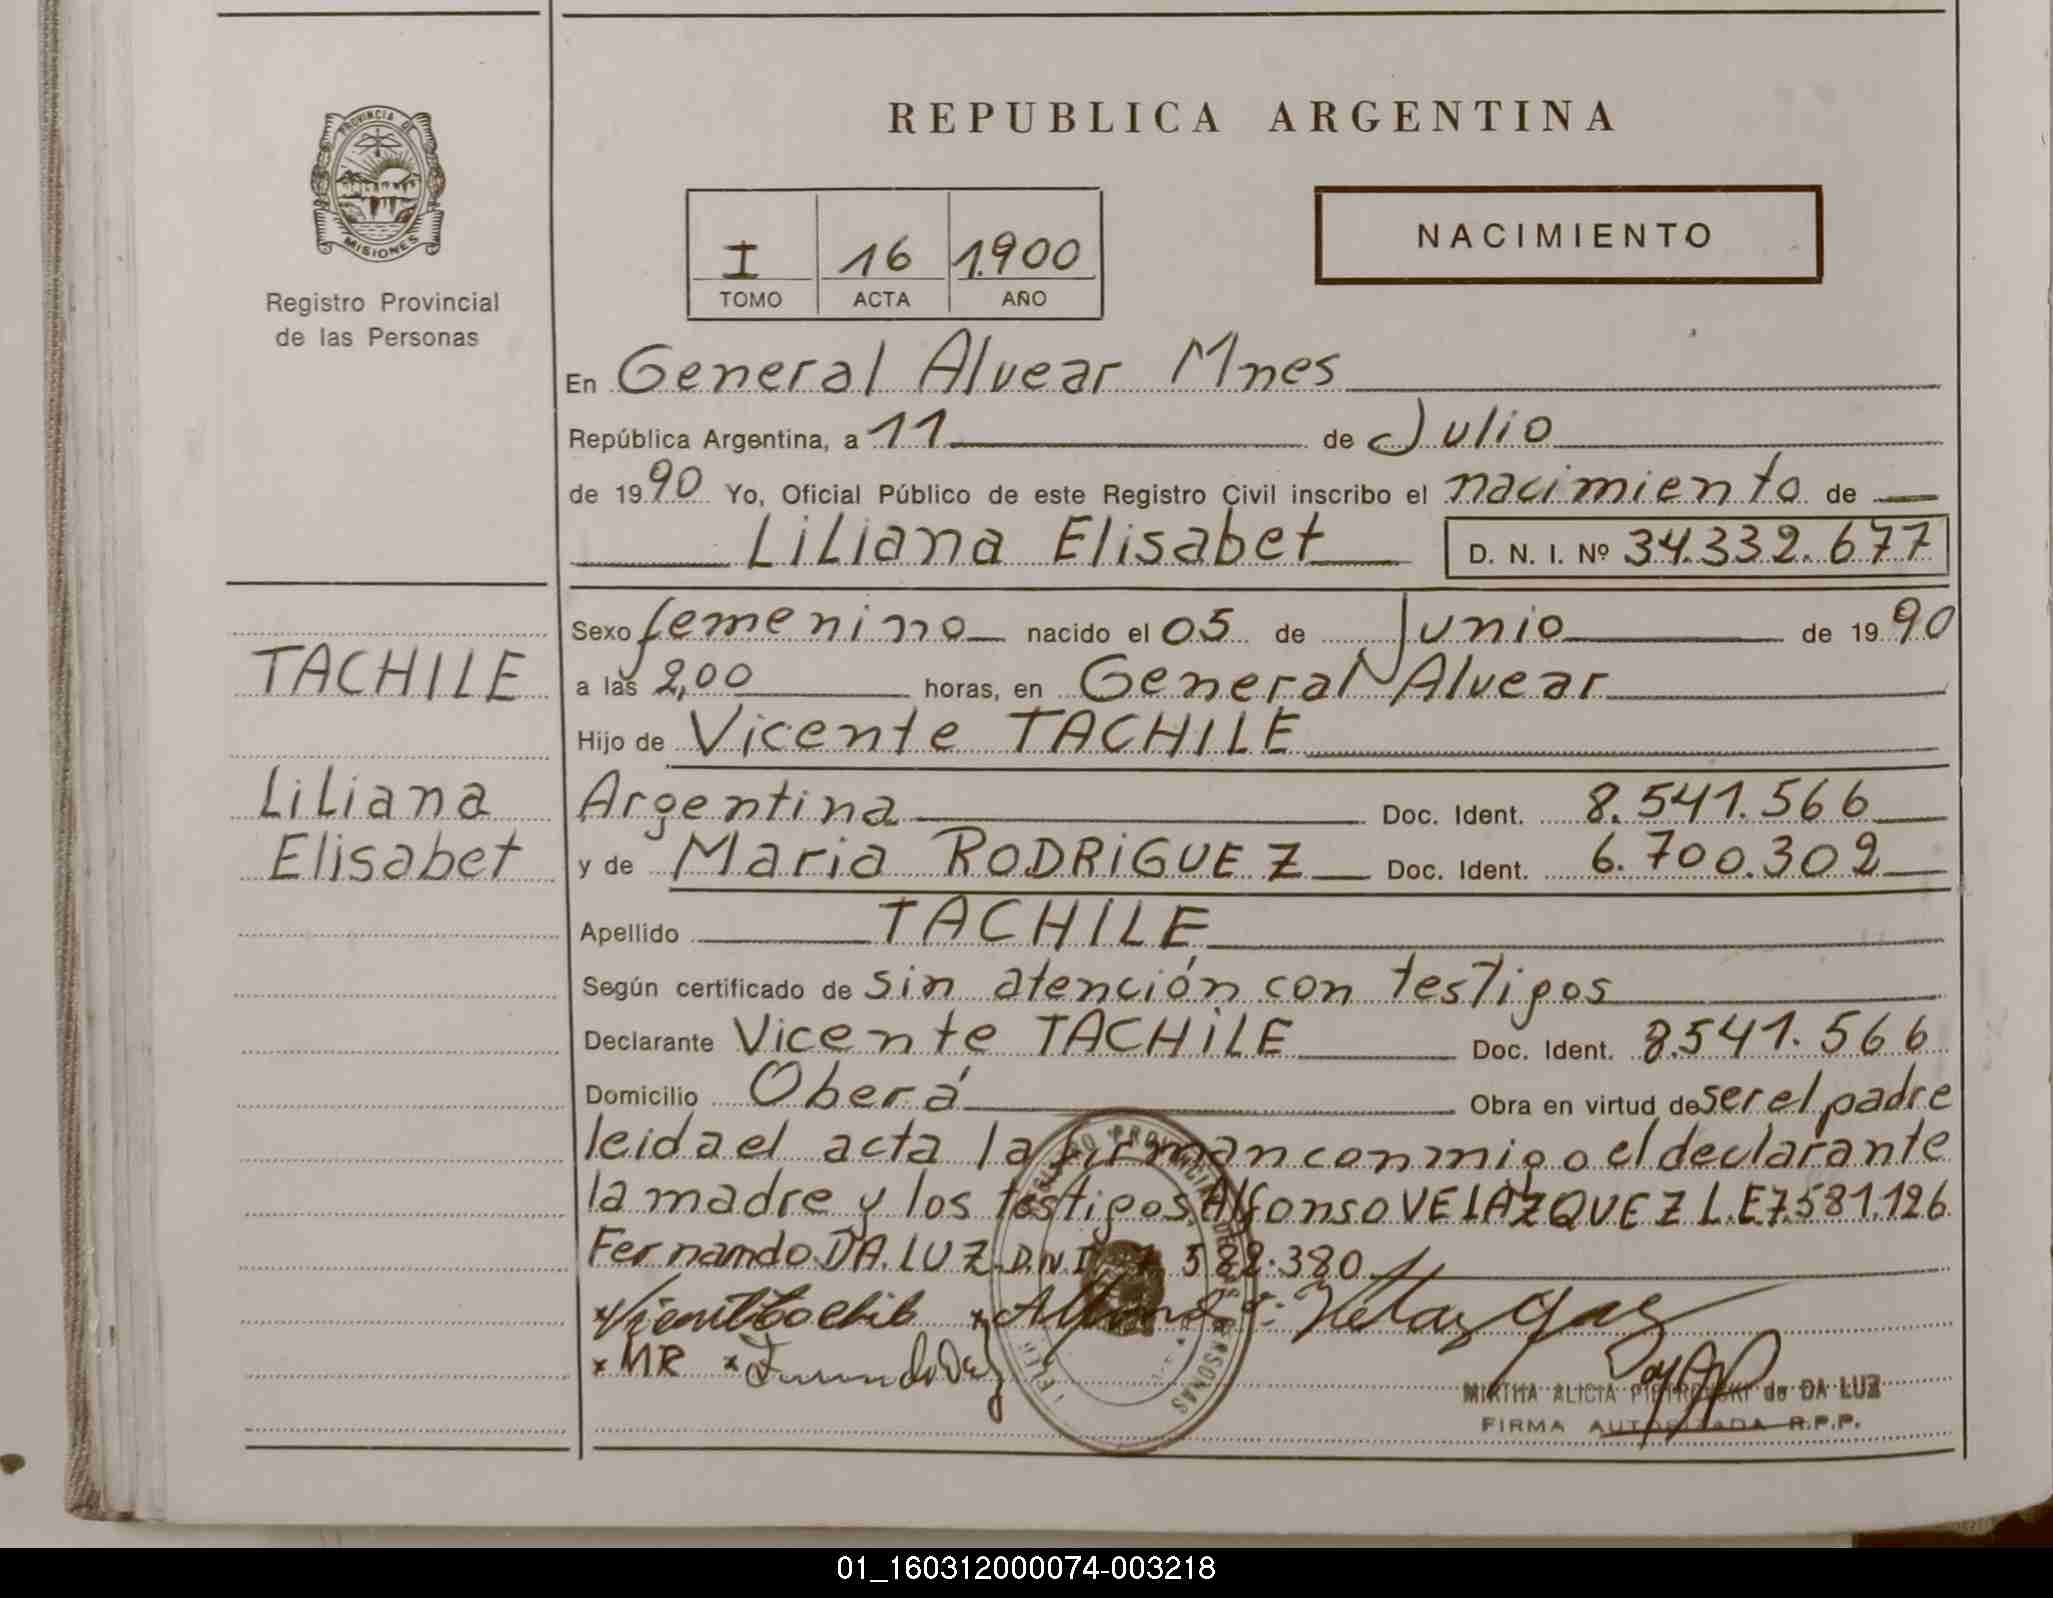 REPUBLICA ARGENTINA
PROVINCIA DE
MISIONES
Registro Provincial
de las Personas
I 16 1.900
TOMO ACTA AÑO
NACIMIENTO
En General Alvear Mnes
República Argentina, a 11 de Julio
de 1990 Yo, Oficial Público de este Registro Civil inscribo el nacimiento de
Liliana Elisabet D. N. I. Nº 34.332.677
Sexo femenino nacido el 05 de Junio de 1990
TACHILE
a las 2,00 horas, en General Alvear
Hijo de Vicente TACHILE
Liliana
Argentina Doc. Ident. 8.541.566
Elisabet
y de Maria RODRIGUEZ Doc. Ident. 6.700.302
Apellido TACHILE
Según certificado de sin atención con testigos
Declarante Vicente TACHILE Doc. Ident. 8.541.566
Domicilio Oberá Obra en virtud de ser el padre
leida el acta la firman conmigo el declarante
la madre y los testigos Alfonso VELAZQUEZ L.E 7.581.126
Fernando DA LUZ D.N.I 582.380
x MR x
MIRTHA ALICIA de DA LUZ
FIRMA AUTORIZADA R.P.P.
01_160312000074-003218